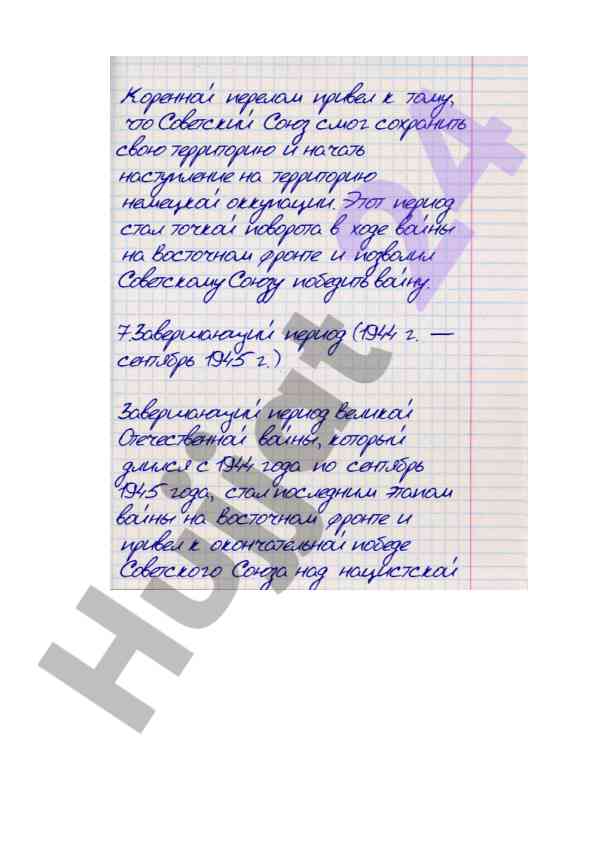 Коренной перелом привел к тому,
что Советский Союз смог сохранить
свою территорию и начать
наступление на территорию
немецкой оккупации. Этот период
стал точкой поворота в ходе войны
на Восточном фронте и позволил
Советскому Союзу победить войну.
7.Завершающий период (1944 г. —
сентябрь 1945 г.)
Завершающий период Великой
Отечественной войны, который
длился с 1944 года по сентябрь
1945 года, стал последним этапом
войны на Восточном фронте и
привел к окончательной победе
Советского Союза над нацистской
Hujjat 24